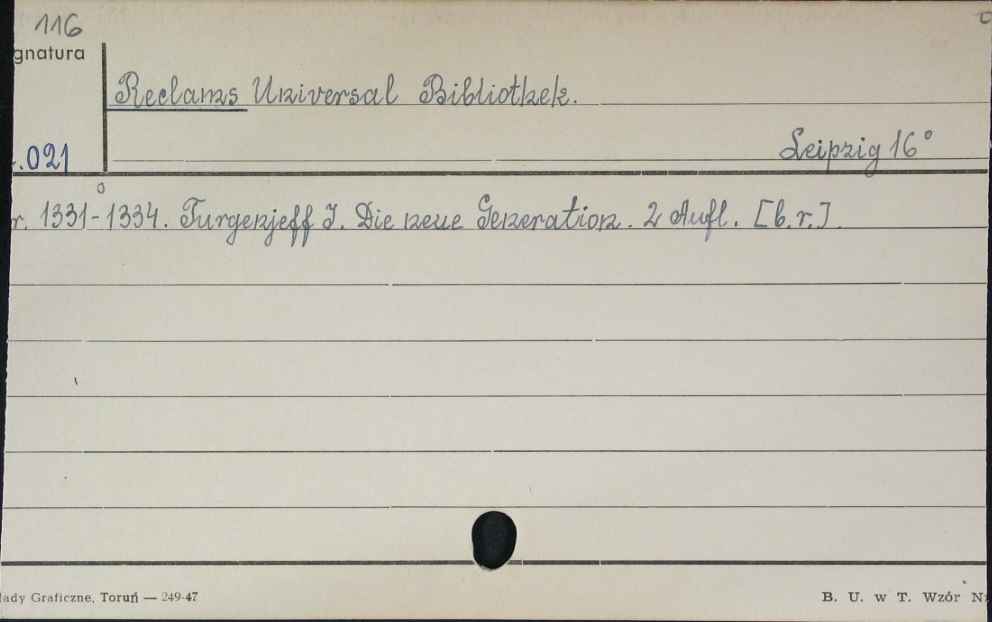 116
gnatura
Reclams Universal Bibliothek.
Leipzig 16°
.021
r. 1331-1334. Turgenjeff I. Die neue Generation. 2 Aufl. [b.r.]
łady Graficzne, Toruń — 249-47
B. U. w T. Wzór N